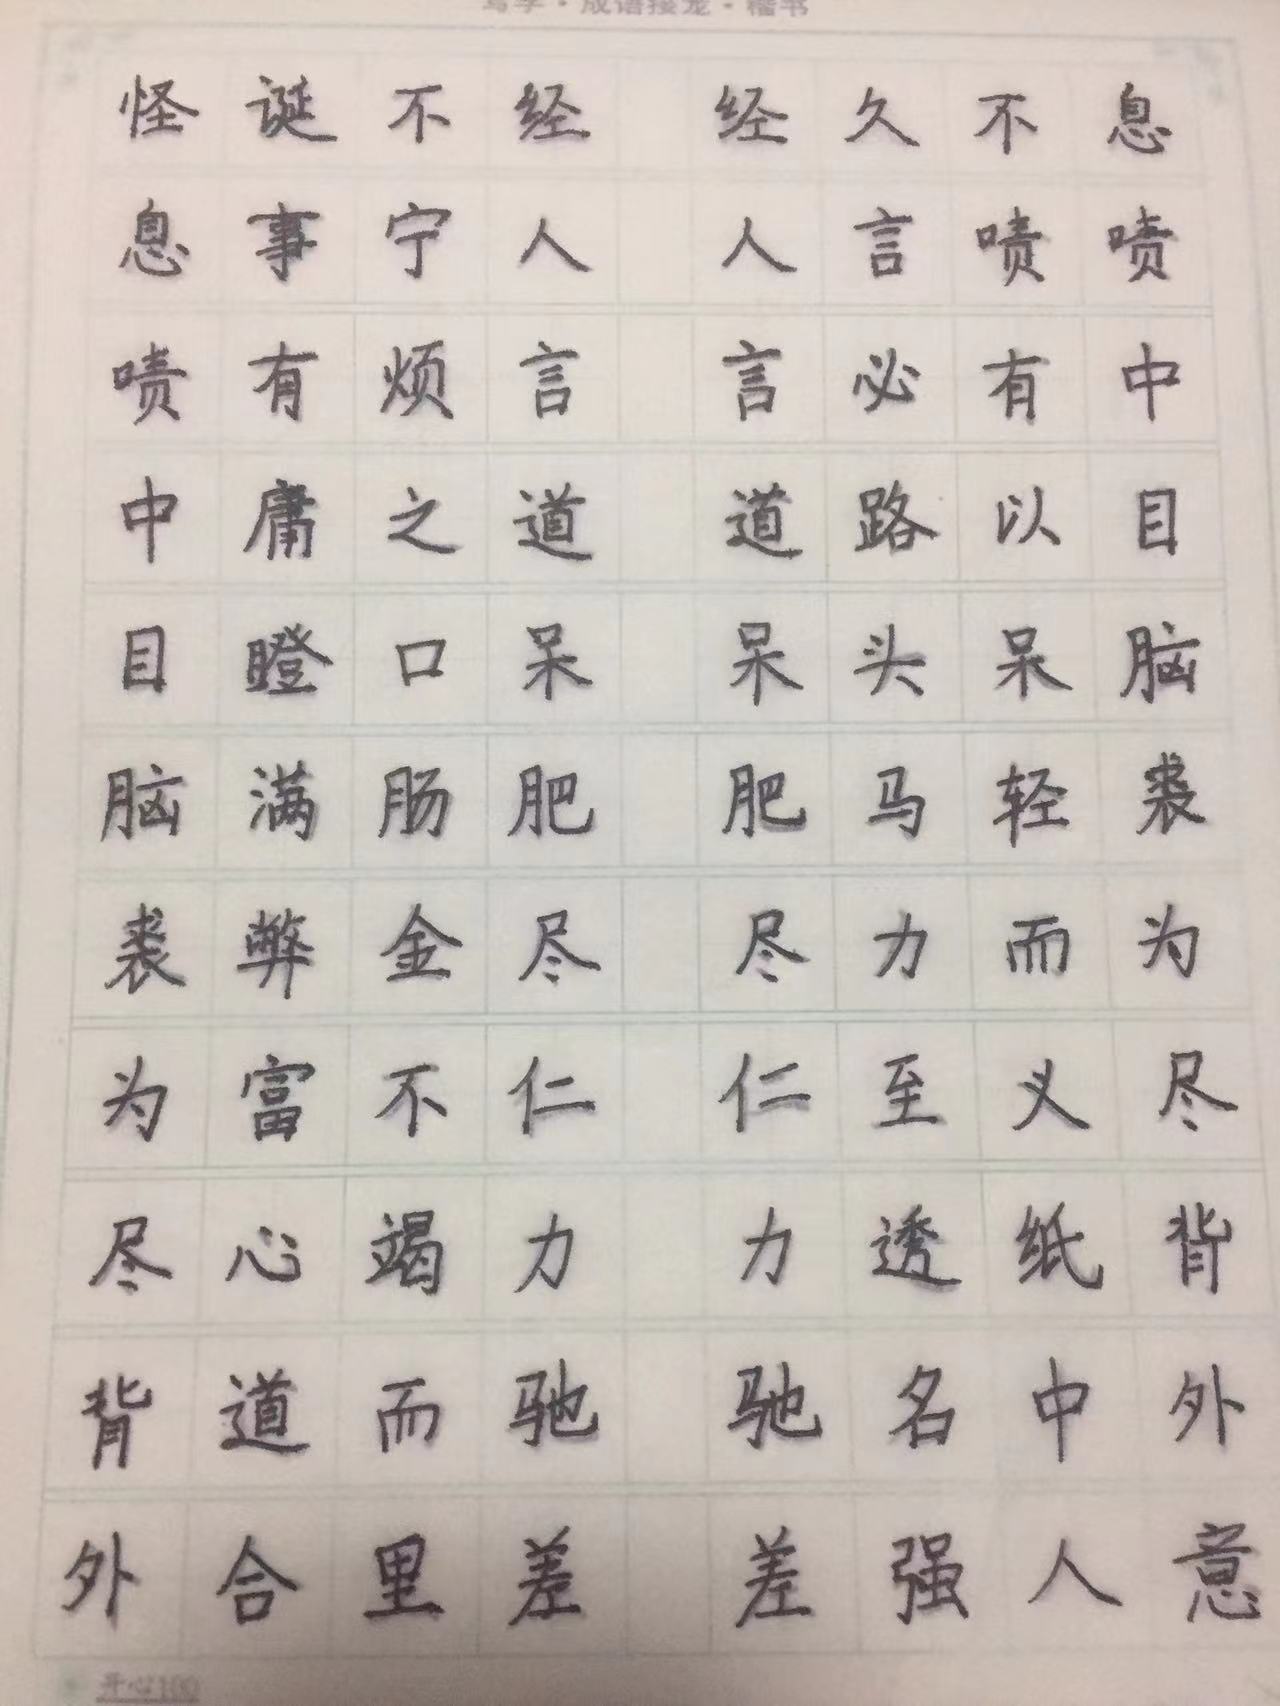 写字·成语接龙·楷书
怪诞不经 经久不息
息事宁人 人言啧啧
啧有烦言 言必有中
中庸之道 道路以目
目瞪口呆 呆头呆脑
脑满肠肥 肥马轻裘
裘弊金尽 尽力而为
为富不仁 仁至义尽
尽心竭力 力透纸背
背道而驰 驰名中外
外合里差 差强人意
开心100